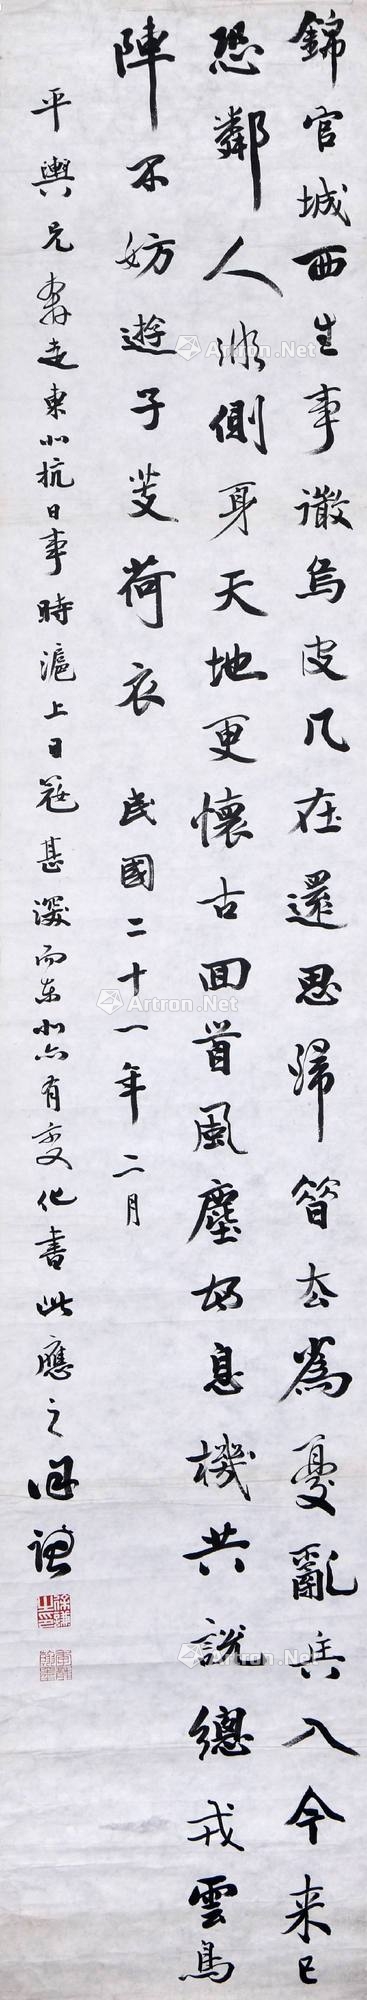 錦官城西生事微烏皮几在還思歸昔去為憂亂兵入今来已
恐鄰人非側身天地更懷古回首風塵甘息機共說總戎雲鳥
陣不妨遊子芰荷衣 民國二十一年二月
平輿兄奔走東北抗日事時滬上日寇甚深而東北亦有变化書此應之 徐謙
Artron.Net
Artron.Net
Artron.Net
Artron.Net
Artron.Net
Artron.Net